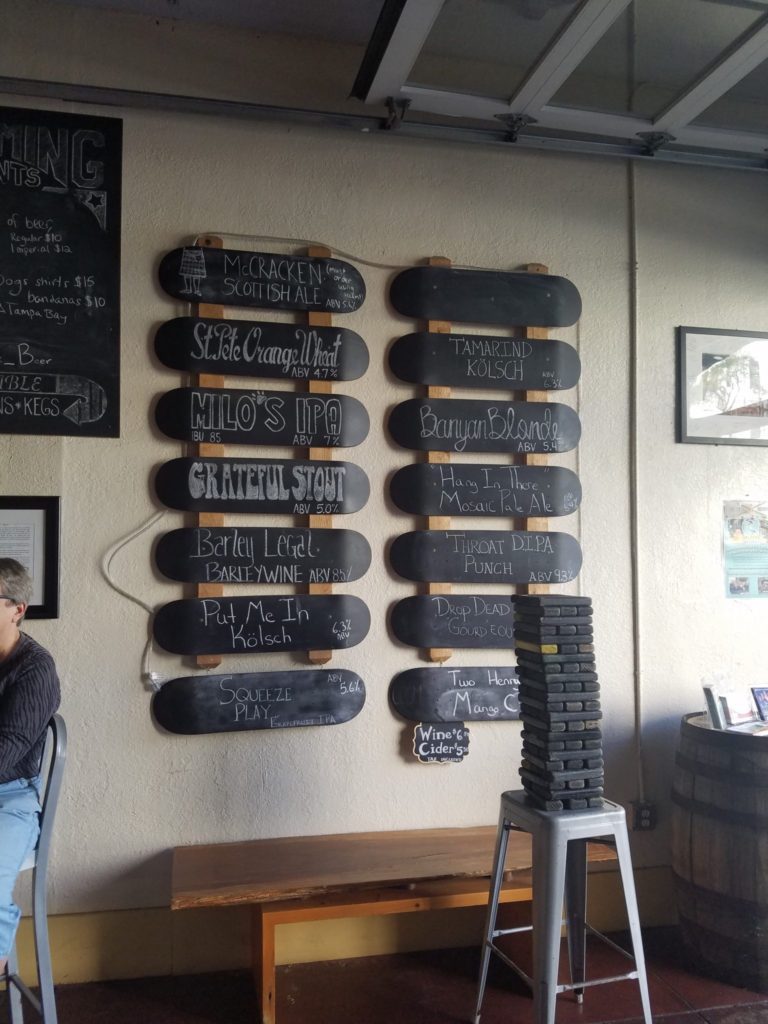 MING
NTS
of beer
Regular $10
Imperial $12
Dogs shirts $15
bandanas $10
Tampa Bay
Beer
MBLE
NS + KEGS
McCRACKEN
SCOTTISH ALE
ABV 5.6%
St. Pete Orange Wheat
ABV 4.7%
MILO'S IPA
IBU 85
ABV 7%
GRATEFUL STOUT
ABV 5.0%
Barley Legal
BARLEYWINE ABV 8.5%
Put Me In
Kölsch
6.3%
ABV
SQUEEZE
PLAY
GRAPEFRUIT IPA
ABV
5.6%
TAMARIND
KÖLSCH
ABV
6.3%
Banyan Blonde
ABV 5.4
"Hang In There"
Mosaic Pale Ale
THROAT D.IPA
PUNCH
ABV 9.3%
DROP DEAD
"GOURD"
Two Henry
Mango C
Wine $6
Cider $5
TAX INCLUDED